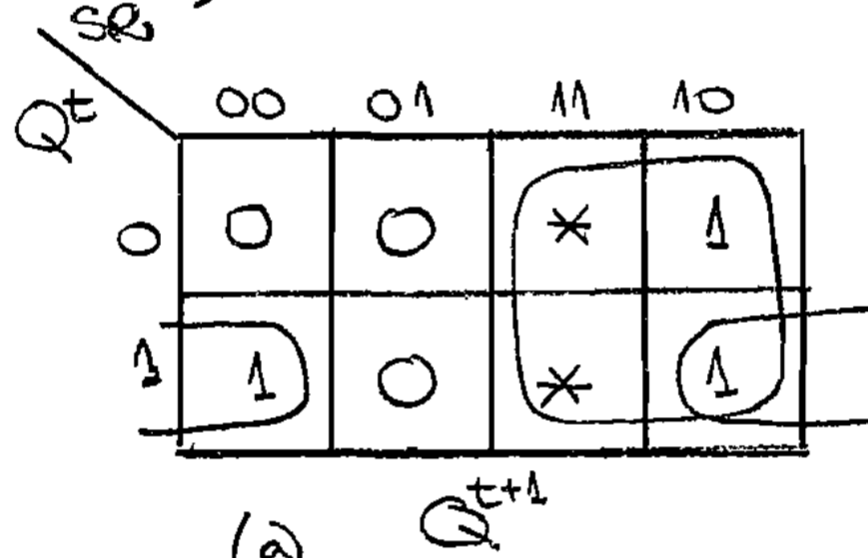 SR
Q^t
00 01 11 10
0 0 0 * 1
1 1 0 * 1
Q^t+1
(a)